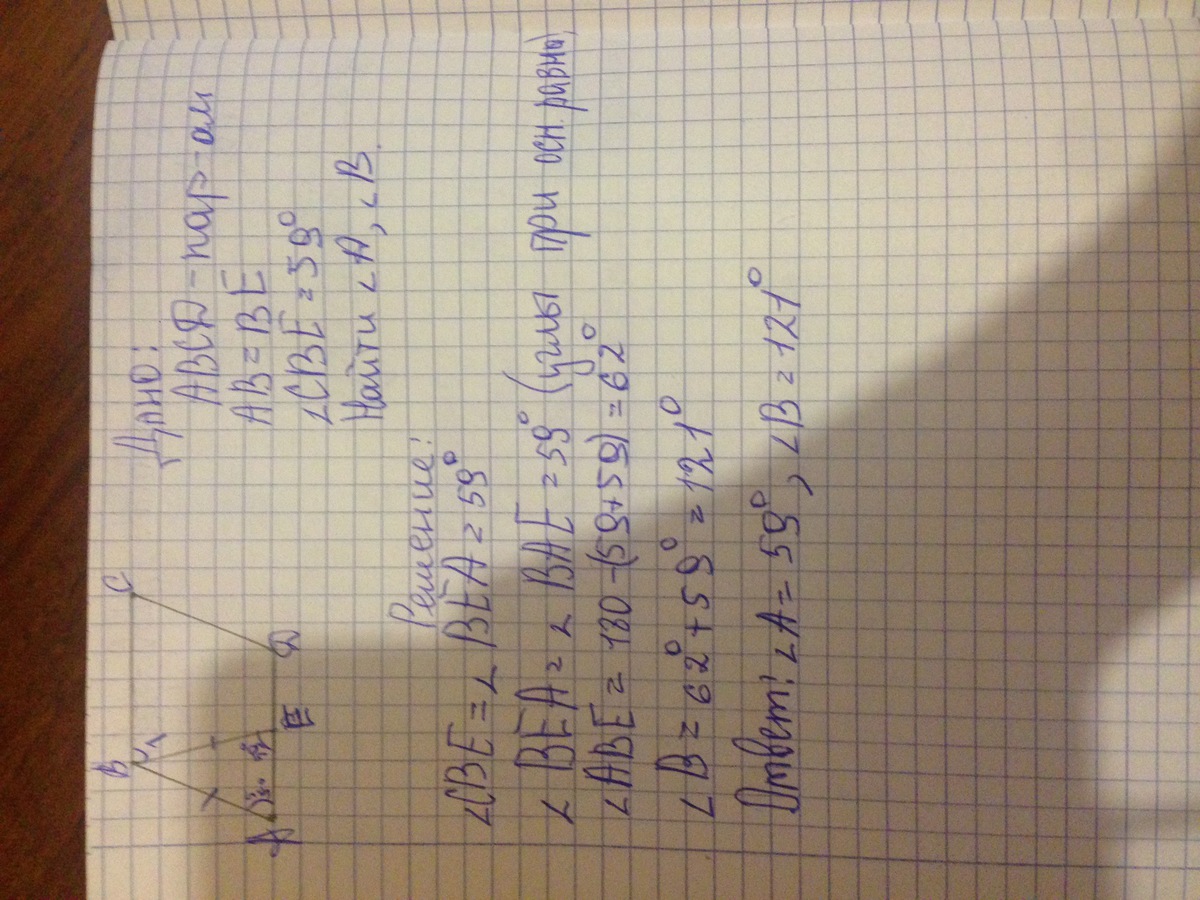 B
C
1
A
E
D
Дано:
ABCD - пар-ам
AB = BE
∠CBE = 59°
Найти ∠A, ∠B.
Решение:
∠CBE = ∠BEA = 59°
∠BEA = ∠BAE = 59° (углы при осн. равны)
∠ABE = 180-(59+59) = 62°
∠B = 62° + 59° = 121°
Ответ: ∠A = 59°, ∠B = 121°